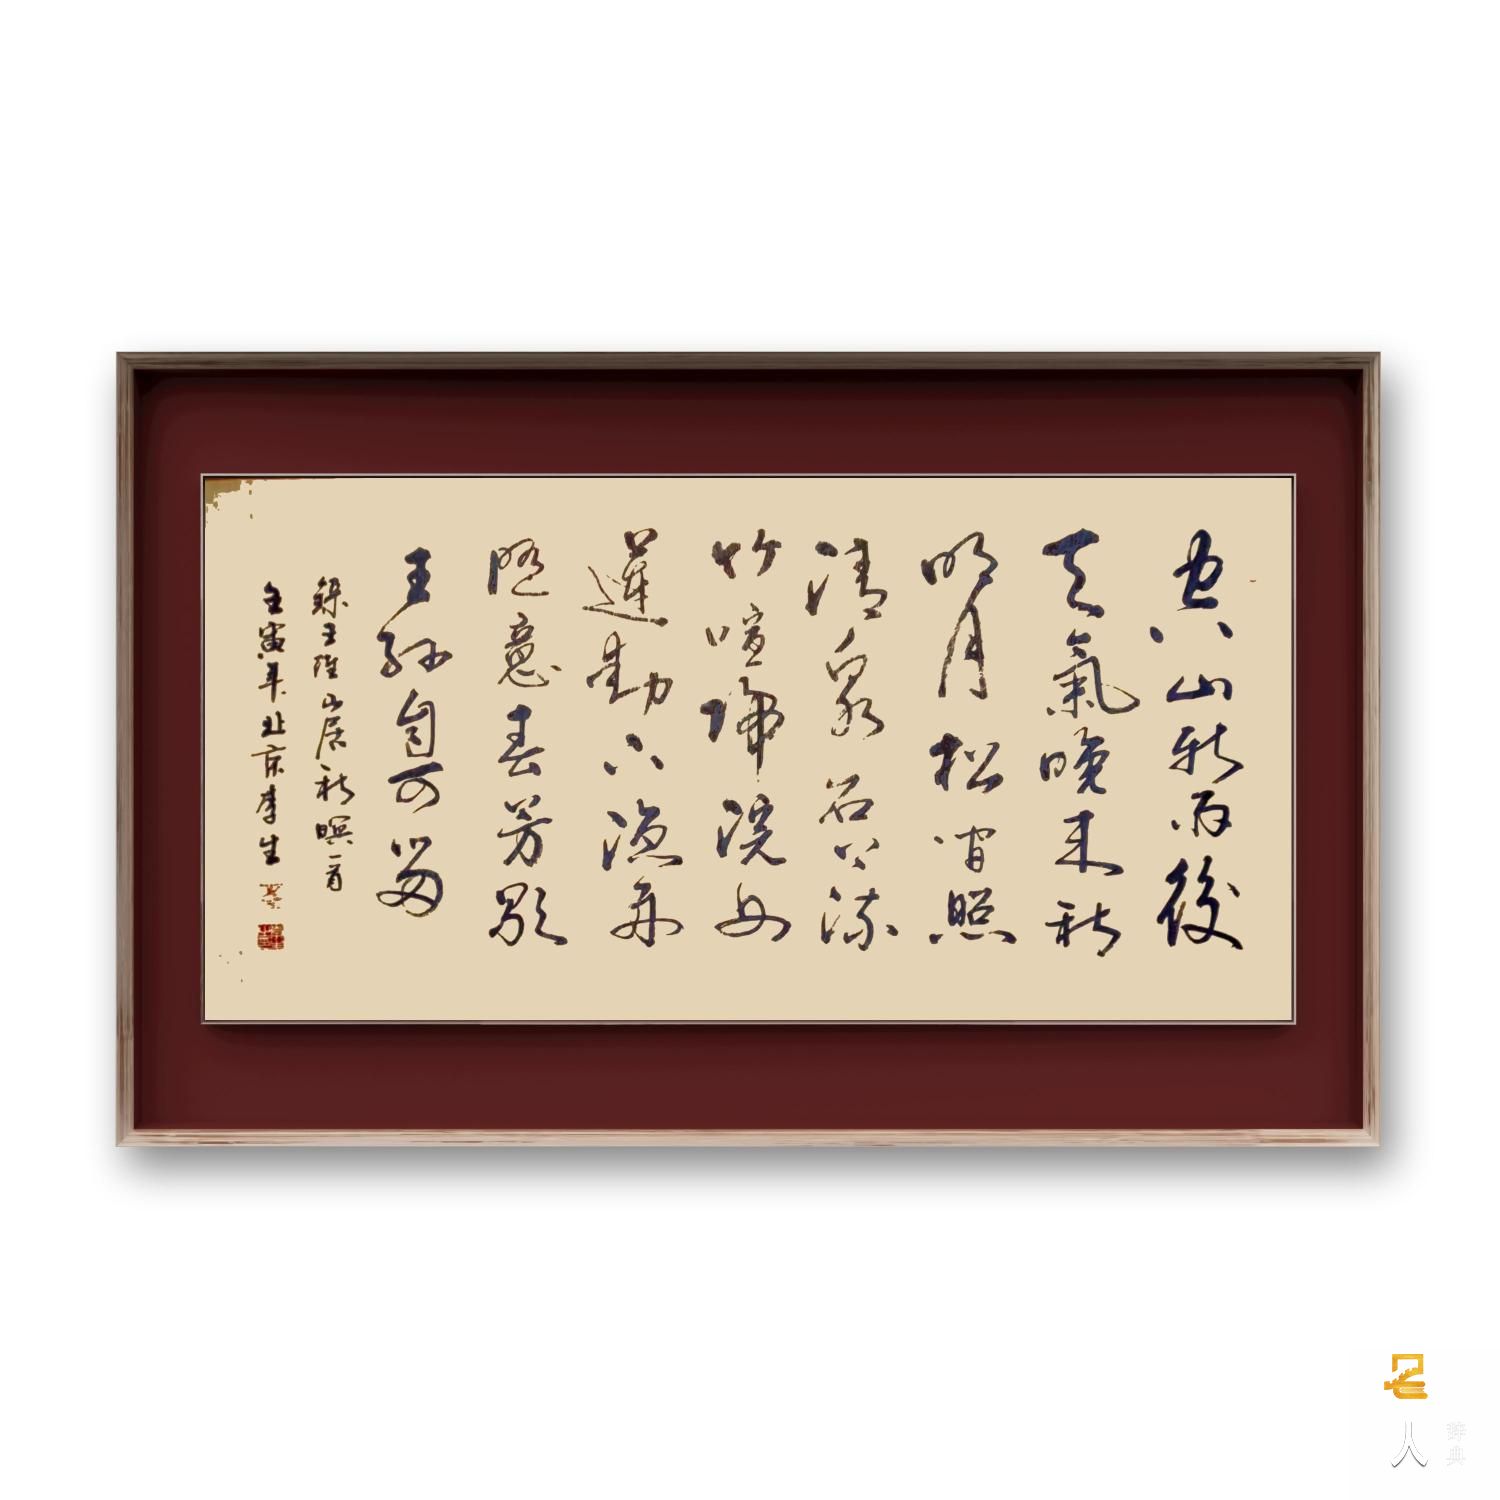 空山新雨後
天氣晚来秋
明月松間照
清泉石上流
竹喧歸浣女
蓮動下漁舟
随意春芳歇
王孫自可留
錄王維山居秋暝一首
壬寅年北京李生
名人
辞典